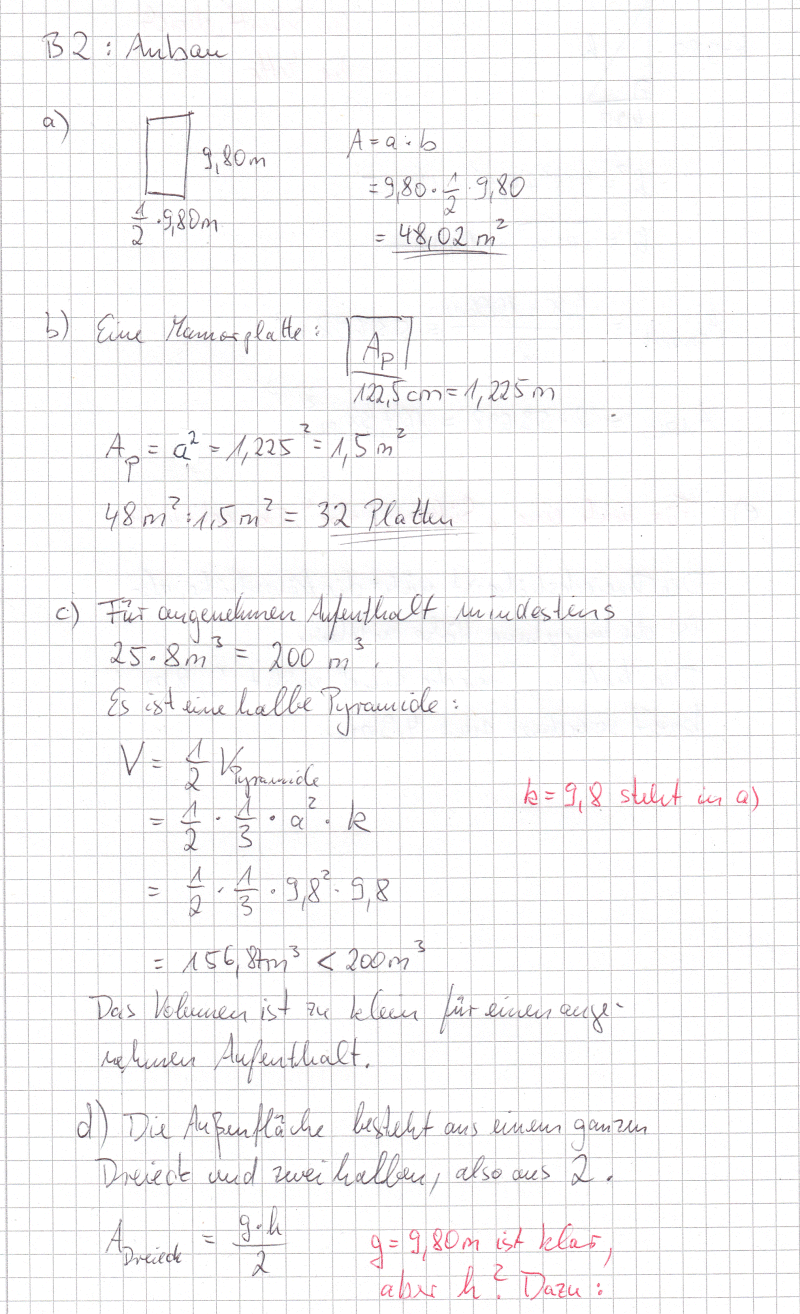 B2: Anbau
a)
9,80m
1/2 · 9,80m
A = a · b
= 9,80 · 1/2 · 9,80
= 48,02 m²
b) Eine Mamorplatte:
A_P
122,5cm = 1,225m
A_P = a² = 1,225² = 1,5 m²
48 m² : 1,5 m² = 32 Platten
c) Für angenehmen Aufenthalt mindestens
25 · 8m³ = 200 m³.
Es ist eine halbe Pyramide:
V = 1/2 V_Pyramide
= 1/2 · 1/3 · a² · k
k = 9,8 steht in a)
= 1/2 · 1/3 · 9,8² · 9,8
= 156,87m³ < 200m³
Das Volumen ist zu klein für einen ange-
nehmen Aufenthalt.
d) Die Außenfläche besteht aus einem ganzen
Dreieck und zwei halben, also aus 2.
A_Dreieck = g·h/2
g = 9,80m ist klar,
aber h? Dazu: